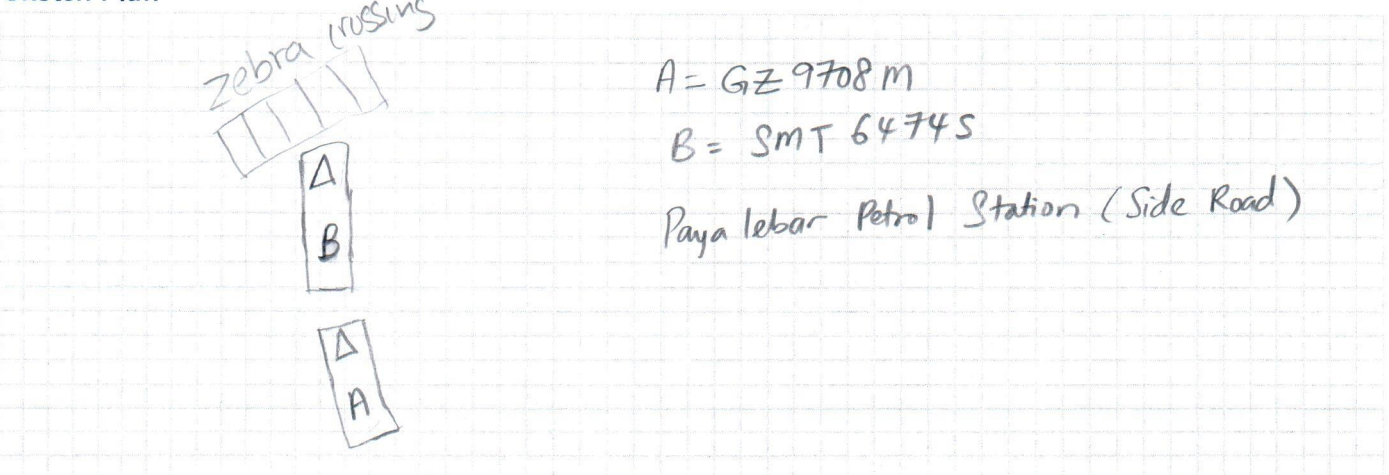 zebra crossing
Δ
B
Δ
A
A = GZ 9708 M
B = SMT 6474 S
Paya lebar Petrol Station (Side Road)